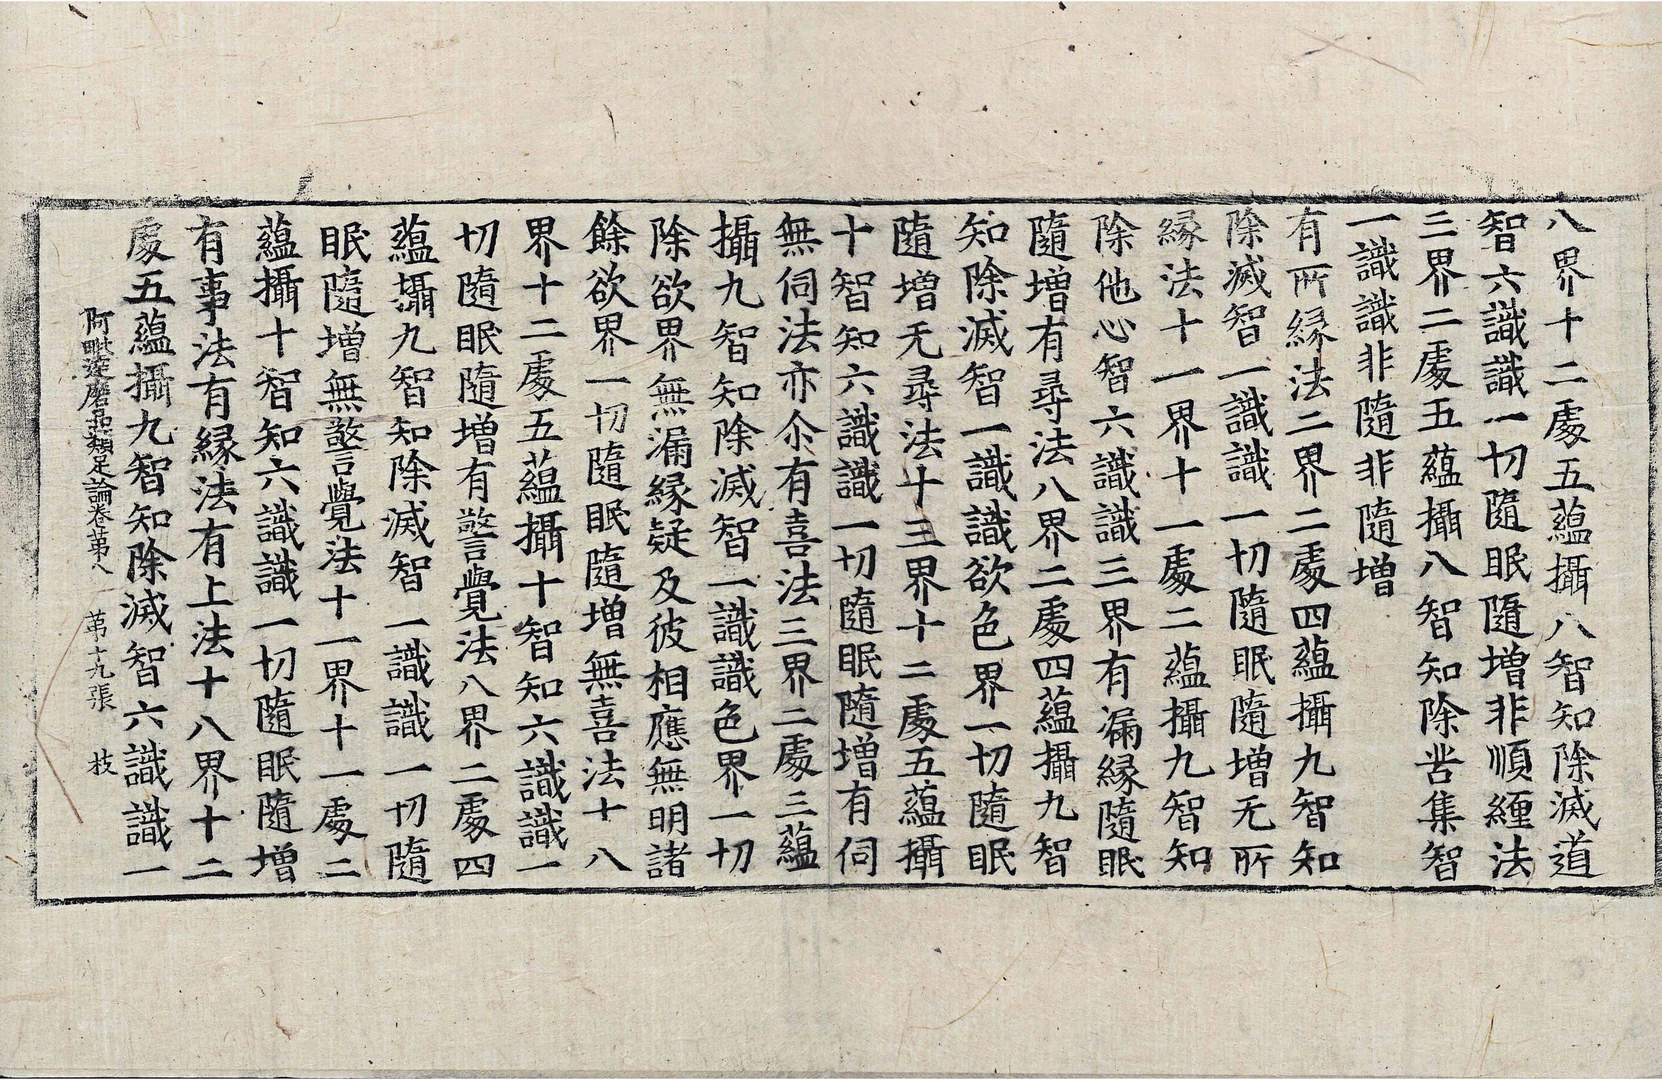 八界十二處五蘊攝八智知除滅道
智六識識一切隨眠隨增非順纏法
三界二處五蘊攝八智知除苦集智
一識識非隨非隨增
有所緣法二界二處四蘊攝九智知
除滅智一識識一切隨眠隨增无所
緣法十一界十一處二蘊攝九智知
除他心智六識識三界有漏緣隨眠
隨增有尋法八界二處四蘊攝九智
知除滅智一識識欲色界一切隨眠
隨增无尋法十三界十二處五蘊攝
十智知六識識一切隨眠隨增有伺
無伺法亦尒有喜法三界二處三蘊
攝九智知除滅智一識識色界一切
除欲界無漏緣疑及彼相應無明諸
餘欲界一切隨眠隨增無喜法十八
界十二處五蘊攝十智知六識識一
切隨眠隨增有警覺法八界二處四
蘊攝九智知除滅智一識識一切隨
眠隨增無警覺法十一界十一處二
蘊攝十智知六識識一切隨眠隨增
有事法有緣法有上法十八界十二
處五蘊攝九智知除滅智六識識一
阿毗達磨品類足論卷第八 第十九張 技